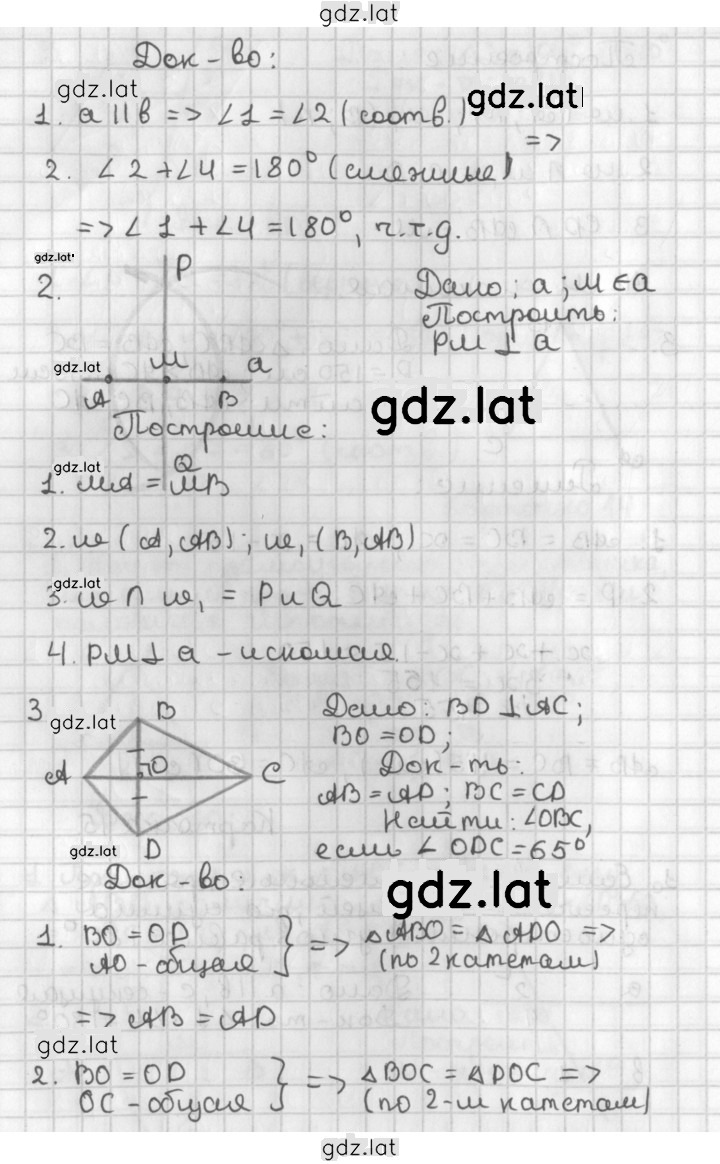 gdz.lat
Док-во:
gdz.lat
gdz.lat
1. a || b => ∠1 = ∠2 (соотв.)
=>
2. ∠2 + ∠4 = 180° (смежные)
=> ∠1 + ∠4 = 180°, ч.т.д.
gdz.lat
2.
P
M
a
A
B
Q
gdz.lat
Дано: a; M ∈ a
Построить:
PM ⊥ a
gdz.lat
Построение:
gdz.lat
1. MA = MB
2. ω (A, AB); ω₁ (B, AB)
gdz.lat
3. ω ∩ ω₁ = P и Q
4. PM ⊥ a - искомая.
3
gdz.lat
B
A
O
C
D
Дано: BD ⊥ AC;
BO = OD;
Док-ть:
AB = AD; BC = CD
Найти: ∠OBC,
если ∠ODC = 65°
gdz.lat
Док-во:
gdz.lat
1. BO = OD
AO - общая
=> △ABO = △ADO =>
(по 2 катетам)
=> AB = AD
gdz.lat
2. BO = OD
OC - общая
=> △BOC = △DOC =>
(по 2-м катетам)
gdz.lat